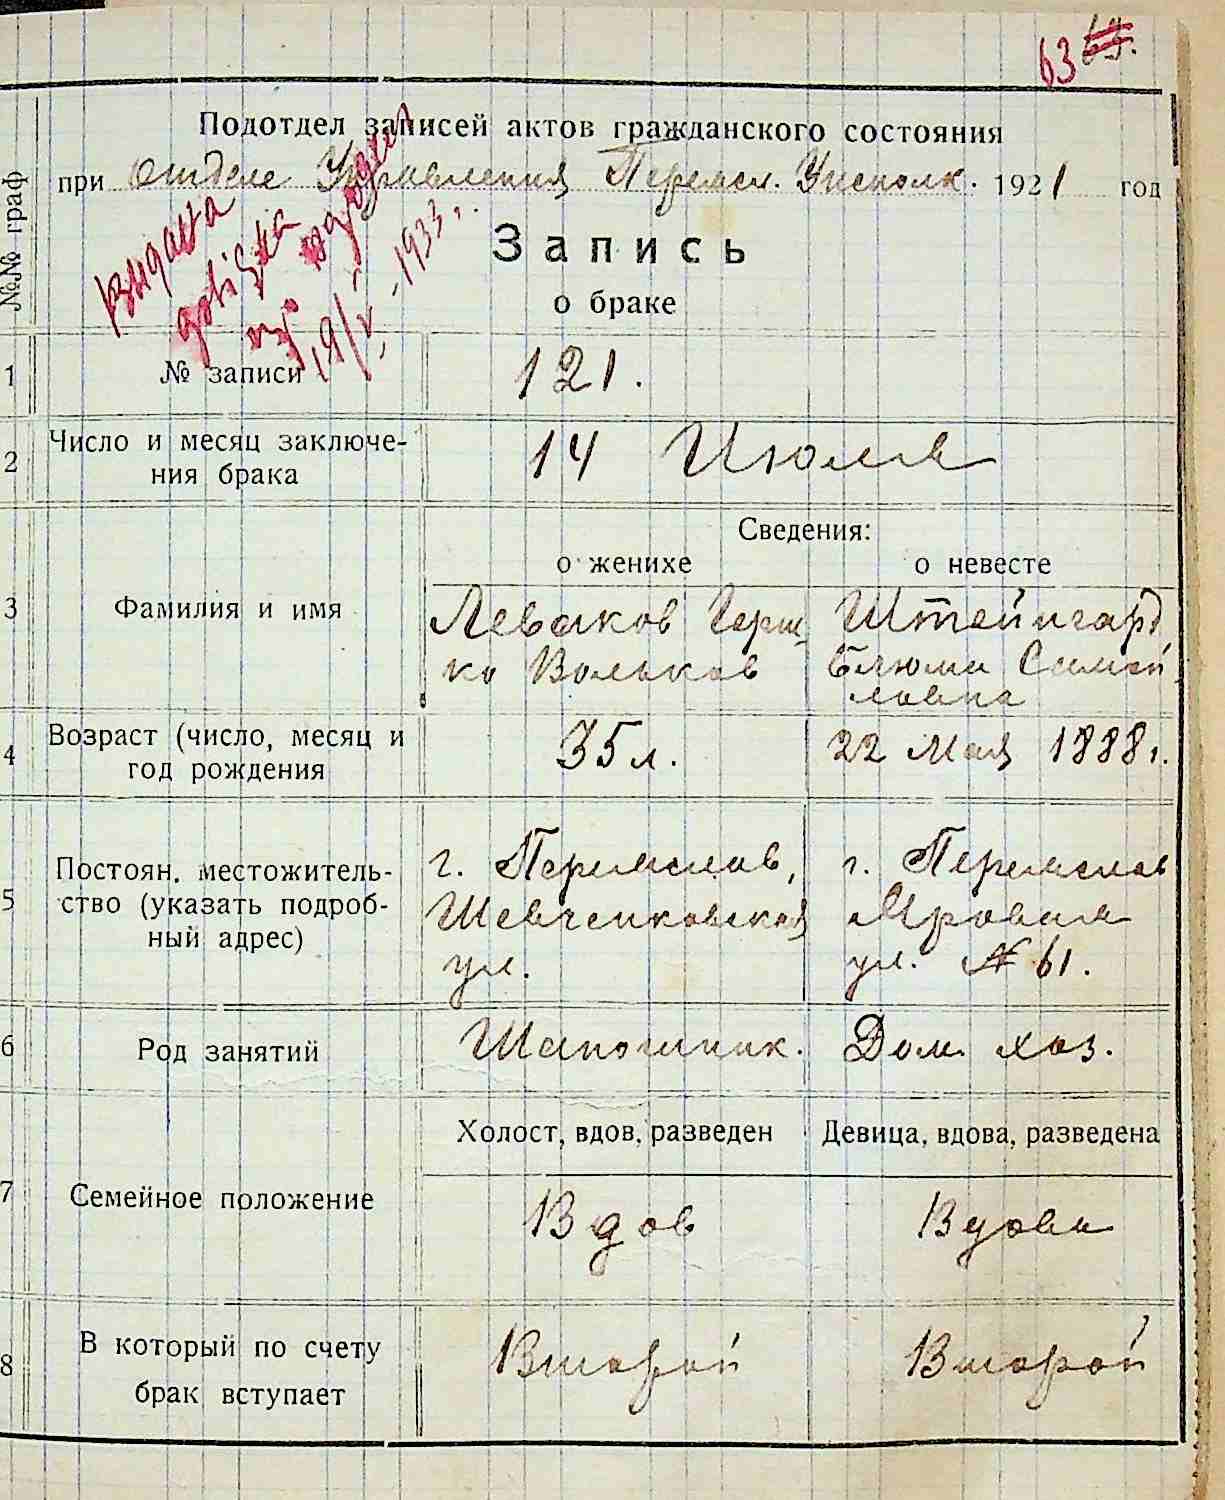 63
Подотдел записей актов гражданского состояния
при Отделе Управления Перемсл. Уисполк. 1921 год
№№ граф
Видана
довідка
19/V 1933.
Запись
о браке
1 № записи 121.
2 Число и месяц заключе-
ния брака 14 Июля
Сведения:
о женихе о невесте
3 Фамилия и имя Леваков Герш- Штейнгард
ко Вольков Блюма Самой-
ловна
4 Возраст (число, месяц и
год рождения 35 л. 22 Мая 1888 г.
5 Постоян. местожитель-
ство (указать подроб-
ный адрес) г. Перемслав, г. Перемслав
Шевченковская Яровая
ул. ул. № 61.
6 Род занятий Шапошник. Дом. хоз.
Холост, вдов, разведен Девица, вдова, разведена
7 Семейное положение Вдов Вдова
8 В который по счету
брак вступает Второй Второй